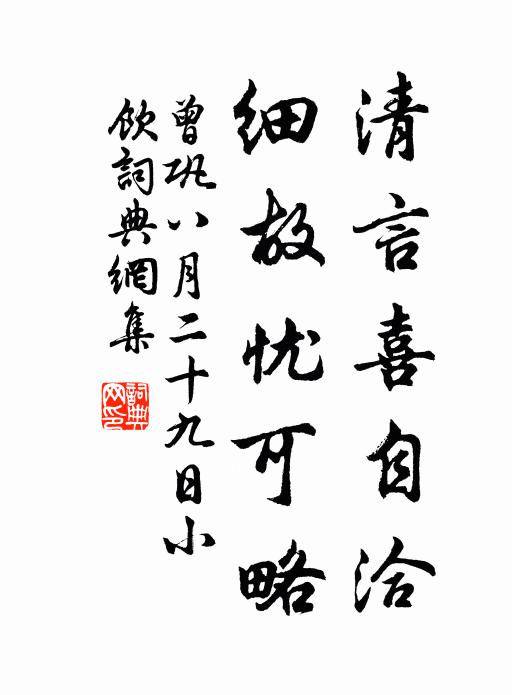 清言喜自洽
细故忧可略
曾巩八月二十九日小
饮詞典網集
詞典网印